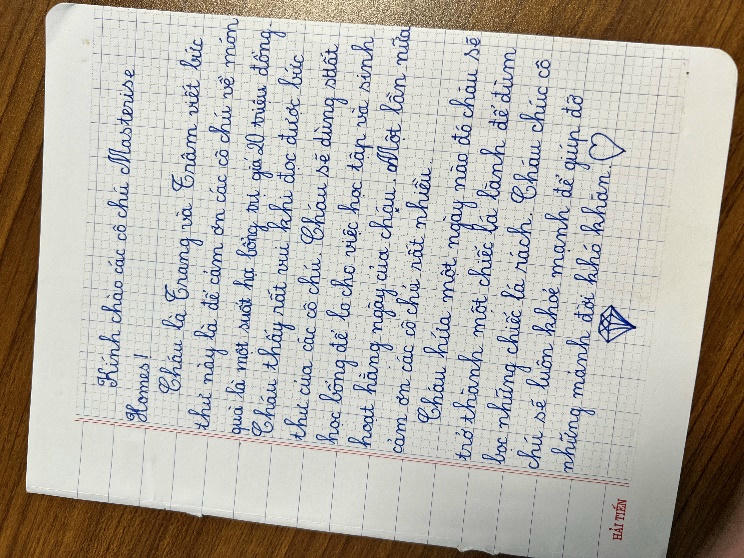 Kính chào các cô chú Masterise
Homes!
Cháu là Trang và Trâm viết bức
thư này là để cảm ơn các cô chú về món
quà là một suất học bổng trị giá 20 triệu đồng.
Cháu thấy rất vui khi đọc được bức
thư của các cô chú. Cháu sẽ dùng suất
học bổng để lo cho việc học tập và sinh
hoạt hằng ngày của cháu. Một lần nữa
cảm ơn các cô chú rất nhiều.
Cháu hứa một ngày nào đó cháu sẽ
trở thành một chiếc lá lành để đùm
bọc những chiếc lá rách. Cháu chúc cô
chú sẽ luôn khoẻ mạnh để giúp đỡ
những mảnh đời khó khăn!
HẢI TIẾN